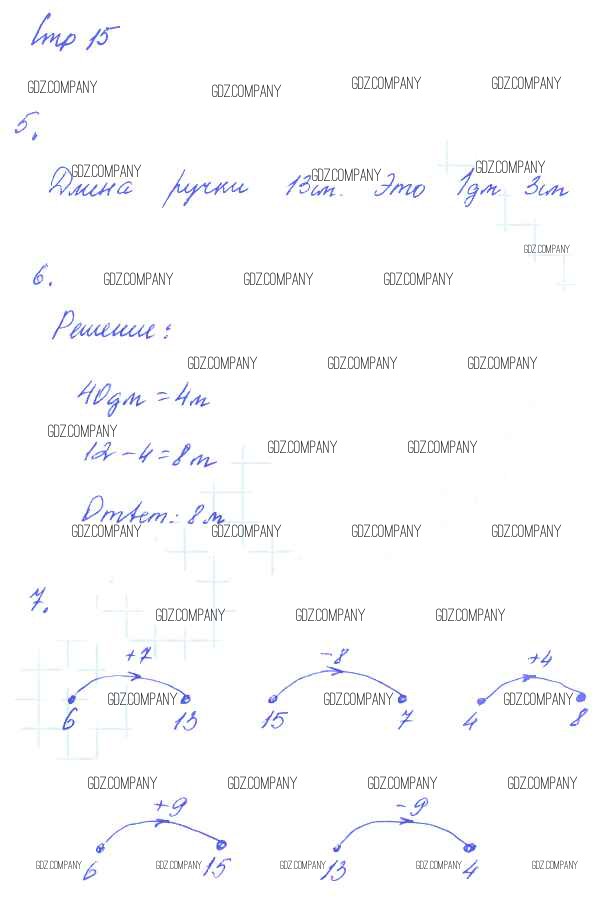 Стр 15
GDZ.COMPANY GDZ.COMPANY GDZ.COMPANY GDZ.COMPANY
5.
GDZ.COMPANY GDZ.COMPANY GDZ.COMPANY
Длина ручки 13см. Это 1дм 3см
GDZ.COMPANY
6. GDZ.COMPANY GDZ.COMPANY GDZ.COMPANY
Решение:
GDZ.COMPANY GDZ.COMPANY GDZ.COMPANY
40дм = 4м
GDZ.COMPANY
12 - 4 = 8м GDZ.COMPANY GDZ.COMPANY
Ответ: 8м
GDZ.COMPANY GDZ.COMPANY GDZ.COMPANY GDZ.COMPANY
7.
GDZ.COMPANY GDZ.COMPANY GDZ.COMPANY
+7 -8 +4
GDZ.COMPANY GDZ.COMPANY GDZ.COMPANY
6 13 15 7 4 8
GDZ.COMPANY GDZ.COMPANY GDZ.COMPANY GDZ.COMPANY
+9 -9
GDZ.COMPANY GDZ.COMPANY GDZ.COMPANY GDZ.COMPANY GDZ.COMPANY
6 15 13 4